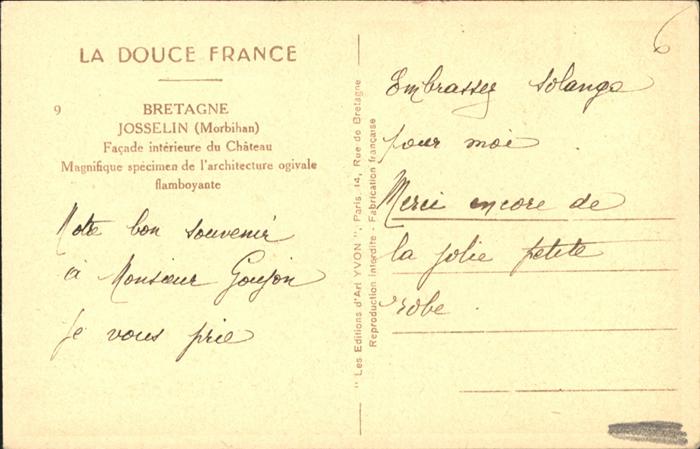 LA DOUCE FRANCE
9
BRETAGNE
JOSSELIN (Morbihan)
Façade intérieure du Château
Magnifique spécimen de l'architecture ogivale
flamboyante
Notre bon souvenir
à Monsieur Goujon
je vous prie
" Les Editions d'Art YVON ", Paris, 14, Rue de Bretagne
Reproduction interdite - Fabrication française
6
Embrassez Solange
pour moi
Merci encore de
la jolie petite
robe.